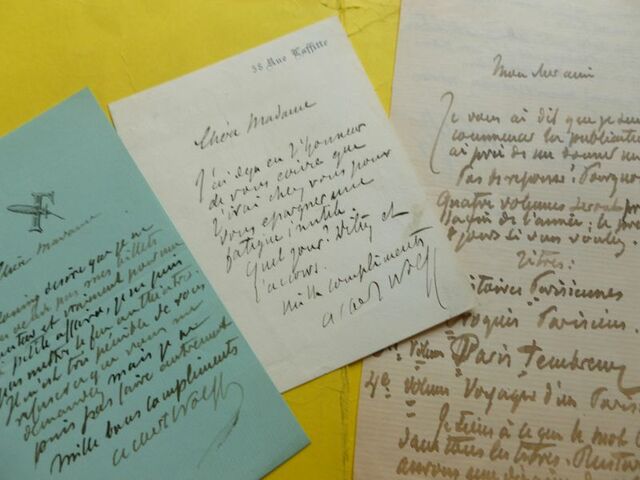 F
Chère Madame
désire que je ne
pas mes billets
et vraiment pour une
petite affaire, je ne puis
pas mettre le feu au théâtre.
Il m'est trop pénible de vous
refuser ce que vous me
demandez mais je ne
puis pas faire autrement
Mille bons compliments
Albert Wolff
38 Rue Laffitte
Chère Madame
J'ai déjà eu l'honneur
de vous écrire que
j'irai chez vous pour
vous épargner une
fatigue inutile.
Quel jour? Dites et
j'accours.
Mille compliments
Albert Wolff
Mon cher ami
Je vous ai dit que je
commencer la publication
ai prié de me donner
Pas de réponse! Pourquoi
Quatre volumes seront
la fin de l'année; le
8 jours si vous voulez.
Titres:
Parisiennes
Croquis Parisiens
Volume Paris
4e Volume Voyages d'un Parisien
Je tiens à ce que le mot
dans tous les titres.
aurons une